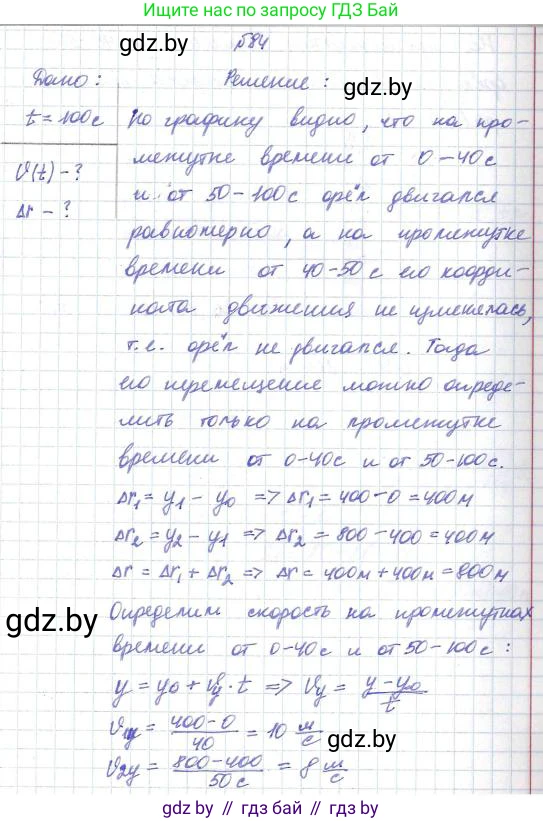 Ищите нас по запросу ГДЗ Бай
gdz.by
№84
Дано:
Решение:
gdz.by
t = 100 с
По графику видно, что на про-
межутке времени от 0-40 с
ϑ(t) - ?
и от 50-100 с орёл двигался
Δr - ?
равномерно, а на промежутке
времени от 40-50 с его коорди-
ната движения не изменялась,
т.е. орёл не двигался. Тогда
его перемещение можно опреде-
лить только на промежутке
времени от 0-40с и от 50-100с.
Δr₁ = y₁ - y₀ => Δr₁ = 400-0 = 400м
Δr₂ = y₂ - y₁ => Δr₂ = 800-400 = 400м
Δr = Δr₁ + Δr₂ => Δr = 400м + 400м = 800м
gdz.by
Определим скорость на промежутках
времени от 0-40с и от 50-100с:
y = y₀ + ϑy · t => ϑy = (y - y₀)/t
ϑ1y = (400-0)/40 = 10 м/с
ϑ2y = (800-400)/50 с = 8 м/с
gdz.by // гдз бай // gdz.by